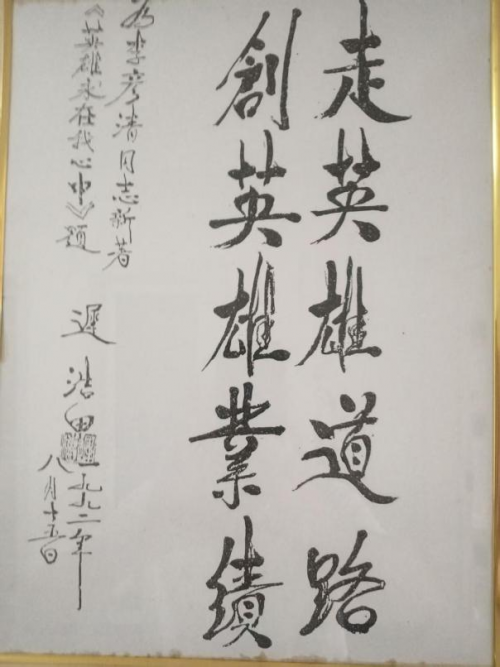 走英雄道路
創英雄業績
为李彦清同志新著
《英雄永在我心中》题
遲浩田
一九九二年
八月十五日